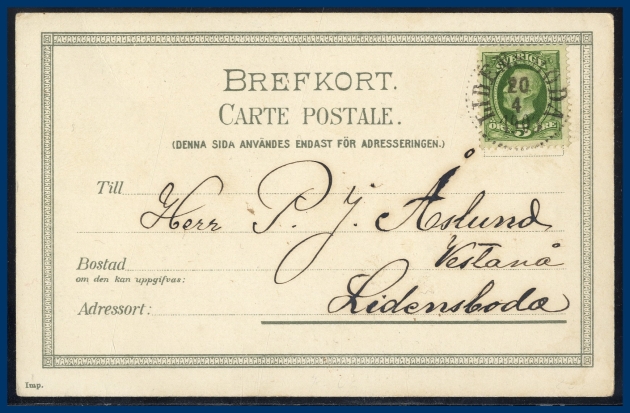 BREFKORT.
CARTE POSTALE.
(DENNA SIDA ANVÄNDES ENDAST FÖR ADRESSERINGEN.)
SVERIGE
20
4
Till
Herr P. J. Åslund,
Vestanå
Bostad
om den kan uppgifvas:
Lidensboda
Adressort:
Imp.